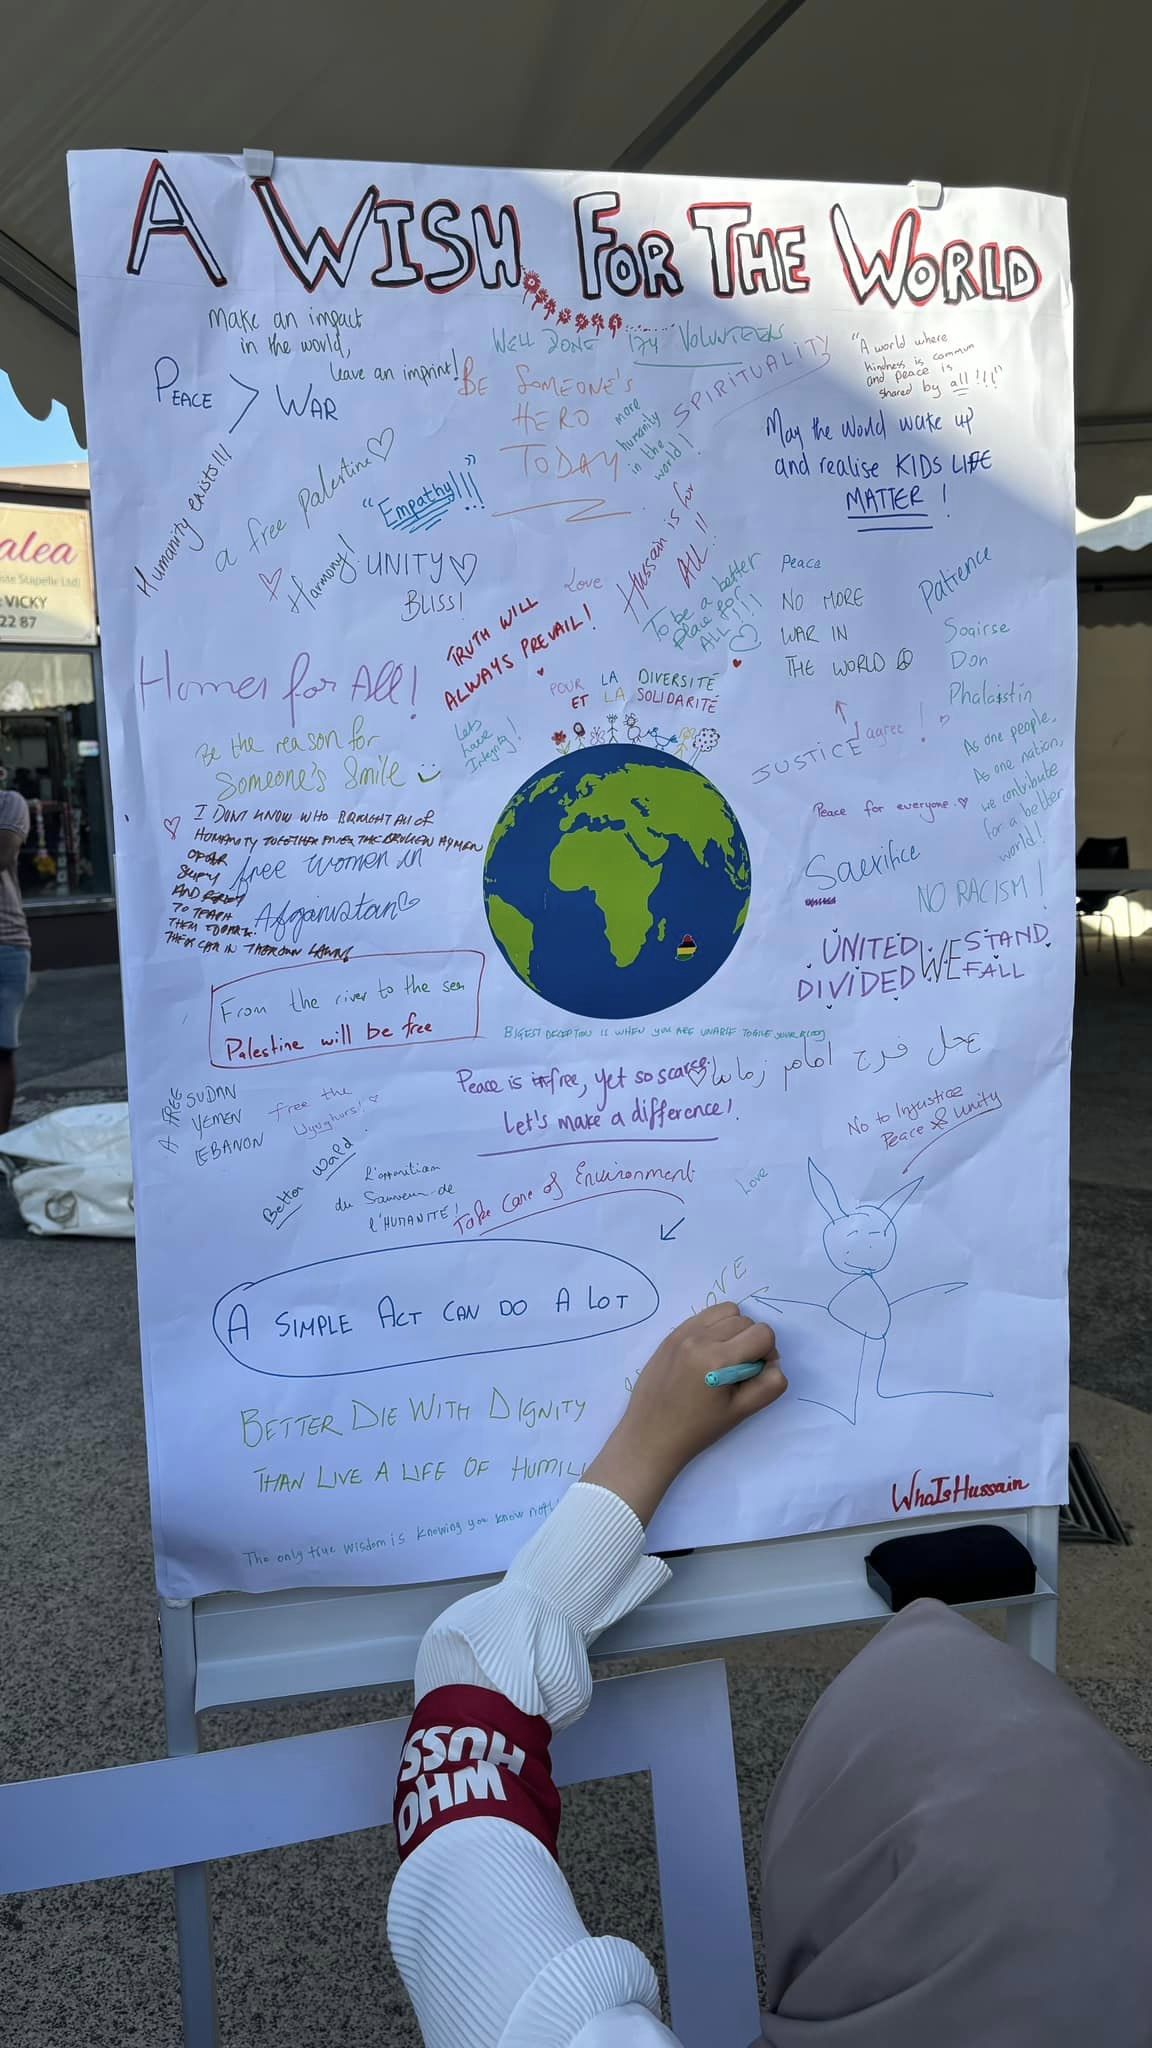 A WISH FOR THE WORLD
Make an impact
in the world,
Leave an imprint!
WELL DONE 174 VOLUNTEERS
PEACE > WAR
BE SOMEONE'S
HERO
TODAY
more
humanity
in the
world!
SPIRITUALITY
"A world where
kindness is commun
and peace is
shared by all!!!"
May the World wake up
and realise KIDS LIFE
MATTER!
Humanity exists!!!
a free palestine
"Empathy!!!"
Harmony!
UNITY
BLISS!
Love
Hussain is for
ALL!!
To be a better
place for
ALL!!!
Peace
NO MORE
WAR IN
THE WORLD
I agree!
Patience
Saoirse
Don
Phalaistín
TRUTH WILL
ALWAYS PREVAIL!
Homes for All!
POUR LA DIVERSITÉ
ET LA SOLIDARITÉ
Be the reason for
Someone's Smile
Lets
have
Integrity!
JUSTICE
As one people,
As one nation,
we contribute
for a better
world!
Peace for everyone.
I DONT KNOW WHO BROUGHT ALL OF
HUMANITY TOGETHER
AND
free women in
Afganistan
Sacrifice
NO RACISM!
UNITED WE STAND
DIVIDED FALL
From the river to the sea
Palestine will be free
BIGEST DECEPTION IS WHEN YOU ARE
عجل فرج امام زمانا
Peace is free, yet so scarse.
Let's make a difference!
A FREE SUDAN
YEMEN
LEBANON
free the
Uyughurs!
No to Injustice
Peace & Unity
Better World
L'apparition
du Sauveur de
l'HUMANITÉ!
Take Care of Environment
Love
LOVE
A SIMPLE ACT CAN DO A LOT
BETTER DIE WITH DIGNITY
THAN LIVE A LIFE OF HUMILI
The only true wisdom is knowing you know noth
WhoIsHussain
WHO
HUSS
alea
VICKY
22 87